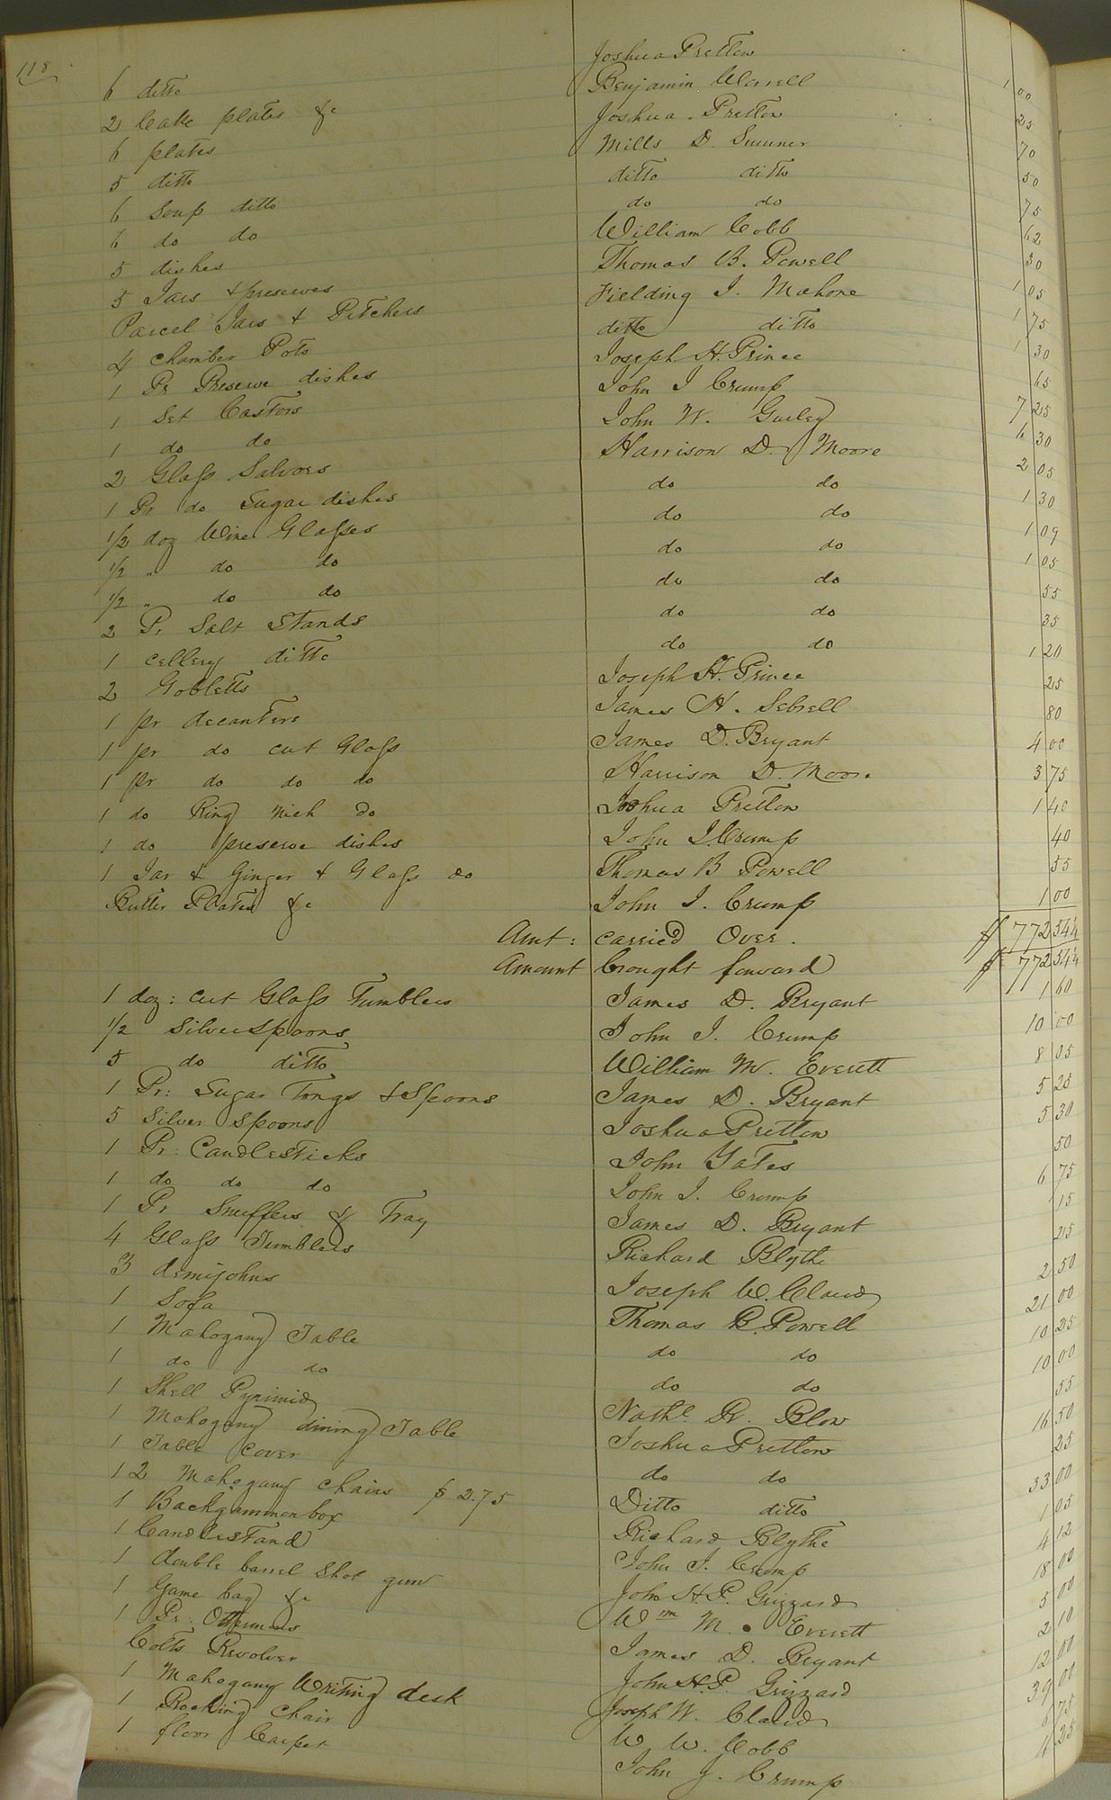 118
6 ditto Joshua Pretlow
2 Cake plates &c Benjamin Worrell 1 00
6 plates Joshua Pretlow 25
5 ditto Mills D. Sumner 70
6 Soup ditto ditto ditto 50
6 do do do do 75
5 dishes William Cobb 62
5 Jars & preserves Thomas B. Powell 30
Parcel Jars & Pitchers Fielding J. Mahone 1 05
4 Chamber Pots ditto ditto 1 75
1 Pr Preserve dishes Joseph H. Prince 1 30
1 Set Castors John J Crump 65
1 do do John W. Gurley 7 25
2 Glass Salvers Harrison D. Moore 6 30
1 Pr do Sugar dishes do do 2 05
1/2 doz Wine Glasses do do 1 30
1/2 " do do do do 1 09
1/2 " do do do do 1 05
2 Pr Salt Stands do do 55
1 cellery ditto do do 35
2 Gobletts Joseph H. Prince 1 20
1 pr decanters James H. Sebrell 25
1 pr do cut Glass James D. Bryant 80
1 pr do do do Harrison D. Moore 4 00
1 do Ring Nick do Joshua Pretlow 3 75
1 do preserve dishes John J. Crump 1 40
1 Jar & Ginger & Glass do Thomas B Powell 40
Butter Plates &c John J. Crump 55
1 00
Amt: carried Over. $772 54 1/2
Amount brought forward $772 54 1/2
1 doz: cut Glass Tumblers James D. Bryant 1 60
1/2 Silver Spoons John J. Crump 10 00
5 do ditto William M. Everett 8 05
1 Pr: Sugar Tongs & Spoons James D. Bryant 5 25
5 Silver Spoons Joshua Pretlow 5 30
1 Pr. Candlesticks John Yates 50
1 do do do John J. Crump 6 75
1 Pr Snuffers & Tray James D. Bryant 15
4 Glass Tumblers Richard Blythe 25
3 demijohns Joseph W. Claud 2 50
1 Sofa Thomas B. Powell 21 00
1 Mahogany Table do do 10 25
1 do do do do 10 00
1 Shell Pyrimid Nathl. B. Blow 55
1 Mahogany dining Table Joshua Pretlow 16 50
1 Table Cover do do 25
12 Mahogany chairs $2.75 Ditto ditto 33 00
1 Backgammon box Richard Blythe 1 05
1 Candlestand John J. Crump 4 12
1 double barrel Shot gun John H. P. Grizzard 18 00
1 Game bag &c Wm M. Everett 5 00
1 Pr. Ottermans James D. Bryant 2 10
Colts Revolver John H. P. Grizzard 12 00
1 Mahogany Writing desk Joseph W. Claud 39 00
1 Rocking Chair W. W. Cobb 6 75
1 floor Carpet John J. Crump 11 25